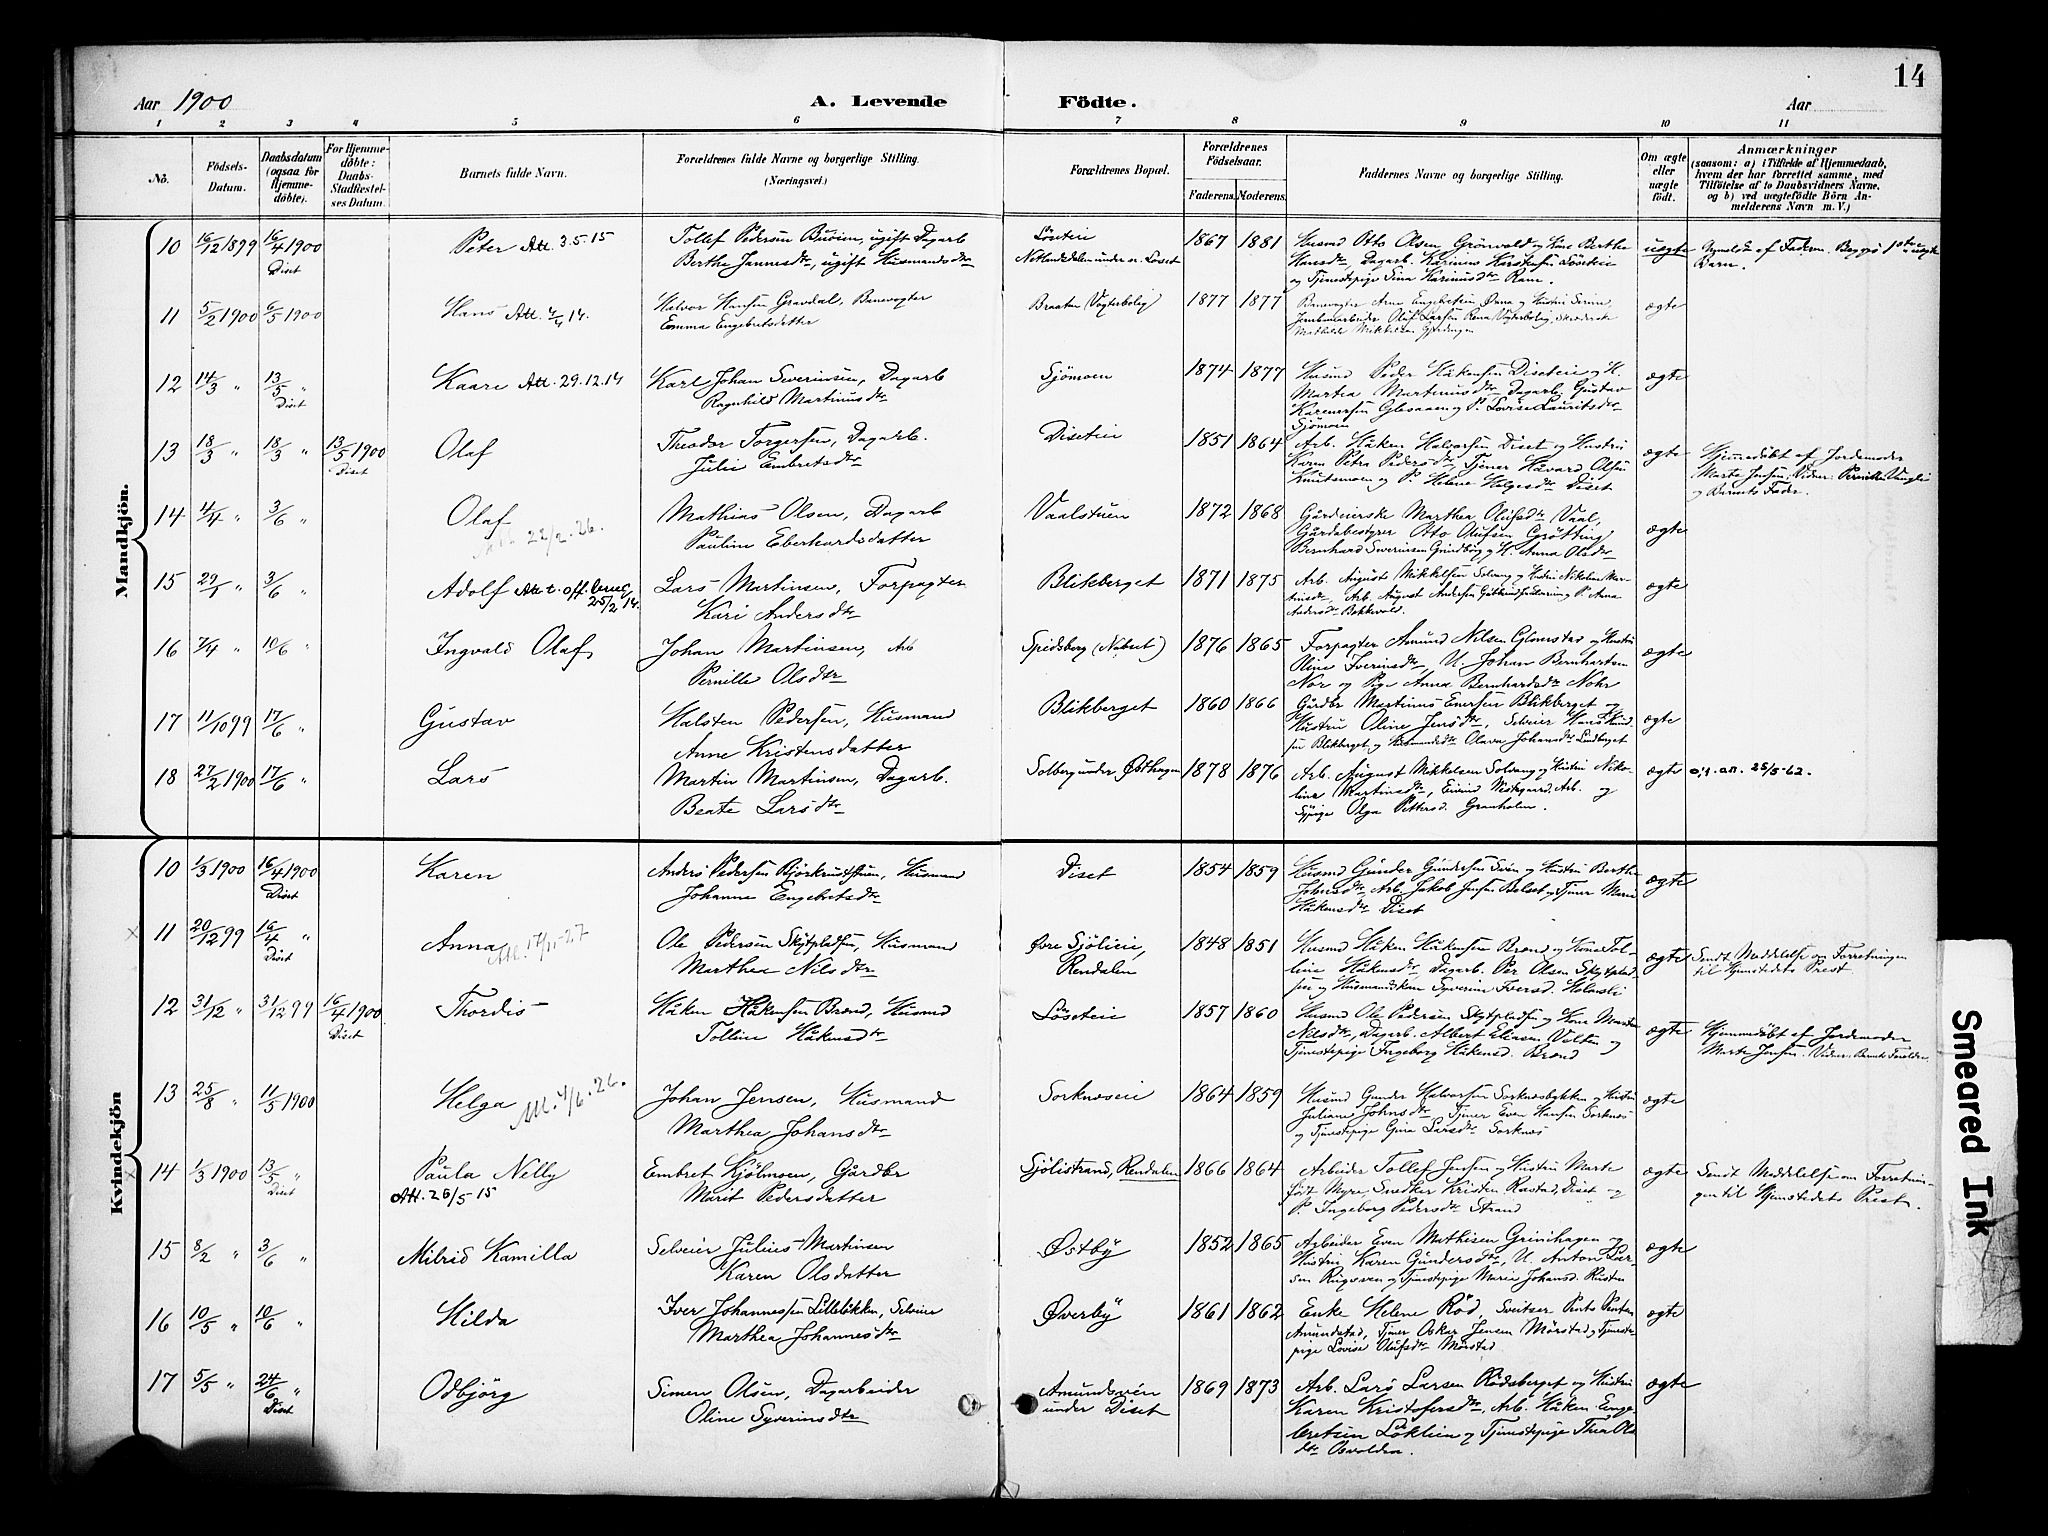 14
Aar 1900
A. Levende Födte.
Aar
1 2 3 4 5 6 7 8 9 10 11
No.
Födsels-Datum.
Daabsdatum (ogsaa for Hjemmedöbte).
For Hjemmedöbte: Daabs-Stadfæstelses Datum.
Barnets fulde Navn.
Forældrenes fulde Navne og borgerlige Stilling.
(Næringsvei.)
Forældrenes Bopæl.
Forældrenes Födselsaar.
Faderens. Moderens.
Faddernes Navne og borgerlige Stilling.
Om ægte eller uægte födt.
Anmærkninger
(saasom: a) i Tilfælde af Hjemmedaab, hvem der har forrettet samme, med Tilföielse af to Daabsvidners Navne, og b) ved uægtefödte Börn Anmelderens Navn m. V.)
Mandkjön.
10 16/12 1899 16/4 1900 Diset
Peter Att. 3.5.15
Tollef Pedersen, ugift Dagarb
Berthe Jannesdtr, ugift Husmandsdtr
Löseteie
1867 1881
Husmd Otto Olsen Grönvold og Kone Berthe
uegte
Barn.
11 5/2 1900 6/5 1900
Hans Att. 4/4 14.
Halvor Hansen Gravdal, Banevogter
Emma Engebretsdatter
Braaten (Vogterbolig)
1877 1877
ægte
12 14/3 " 13/5 " Diset
Kaare Att. 29.12.14
Karl Johan Severinsen, Dagarb
Ragnhild Martinusdtr
Sjömoen
1874 1877
Husmd Peder Håkensen Diseteie og H.
Martea Martinusdtr Dagarb. Gustav
Sjömoen
ægte
13 18/3 " 18/3 " 13/5 1900 Diset
Olaf
Theodor Torgersen, Dagarb.
Julie Embretsdtr
Diseteie
1851 1864
Arb. Håken Halvorsen Diset og Hustru
Karen Petra Pedersdtr, Tjener Håvard Olsen
Knutsmoen og P. Helene Helgesdtr Diset
ægte
Hjemmedöbt af Jordemoder
Marte Jensen. Vidner:
og Barnets Fader.
14 4/4 " 3/6 "
Olaf
22/2.26.
Mathias Olsen, Dagarb
Pauline Eberhardsdatter
Vaalstuen
1872 1868
Gårdeierske Marthea Olufsdtr Vaal,
Gårdsbestyrer Otto Olufsen Grötting
Bernhard Severinsen Grindborg og H. Anna Olsdtr
ægte
15 29/1 " 3/6 "
Adolf Att. t. off. brug 25/2 14.
Lars Martinsen, Forpagter
Kari Andersdtr
Blikberget
1871 1875
Arb. Augusts Mikkelsen Solvang og Hustru Nikoline Martinsdtr, Arb. August Andersen
Andersdtr Bekkevold.
ægte
16 7/4 " 10/6 "
Ingvald Olaf
Johan Martinsen, Arb
Pernille Olsdtr
Spidsberg (Nabset)
1876 1865
Forpagter Amund Nilsen Glomstad og Hustru
Oline Iversdtr, U. Johan Bernhartsen
Nor og Pige Anna Bernhardsdtr Nohr
ægte
17 11/10 99 17/6 "
Gustav
Halsten Pedersen, Husmand
Anne Kristensdatter
Blikberget
1860 1866
Gårdbr Martinus Enersen Blikberget og
Hustru Oline Jensdtr, Selveier
Blikberget og Husmandsdtr Olava Johansdtr Lundberget
ægte
18 27/2 1900 17/6 "
Lars
Martin Martinsen, Dagarb.
Beate Larsdtr
Solberg under Östhagen
1878 1876
Arb. August Mikkelsen Solvang og Hustru Nikoline Martinsdtr, Eivind Nestegaard, Arb. og
Sypige Olga Pettersd. Granholen.
ægte
25/5-62.
Kvindekjön
10 1/3 1900 16/4 1900 Diset
Karen
Anders Pedersen Björknesstuen, Husmand
Johanne Engebretsdtr
Diset
1854 1859
Husmd Gunder Gundersen Söen og Hustru Berthe
Johnsdtr, Arb. Jakob Jensen Bolset og Tjener Marie
Håkensdtr Diset
ægte
11 20/12 99 16/4 " Diset
Anna Att. 17/11-27
Ole Pedersen Skytpladsen, Husmand
Marthea Nilsdtr
Övre Sjölieie, Rendalen
1848 1851
Husmd Håken Håkensen Brænd og Kone Tolline Håkensdtr, Dagarb. Per Olsen Skytpladsen og
ægte
Sendt Meddelelse om Forretningen
til Hjemstedets Prest
12 31/12 " 31/12 99 16/4 1900 Diset
Thordis
Håken Håkensen Brænd, Husmd
Tolline Håkensdtr
Löseteie
1857 1860
Husmd Ole Pedersen Skytpladsen og Kone Marthea
Nilsdtr, Dagarb. Albert Eliasen Volden og
Tjenestepige Ingeborg Håkensd. Brænd
ægte
Hjemmedöbt af Jordemoder
Marte Jensen. Vidner: Barnets Forældre.
13 25/8 " 11/5 1900
Helga Att. 4/6.26.
Johan Jensen, Husmand
Marthea Johansdtr
Sorknæseie
1864 1859
Husmd Gunder Halvorsen Sorknæsbakken og Hustru
Juliane Johnsdtr, Tjener Even Hansen Sorknæs
og Tjenestepige Gina Larsdtr Sorknæs
ægte
14 1/3 1900 13/5 " Diset
Paula Nelly
Att. 26/5 15
Embret Kjölmoen, Gårdbr
Marit Pedersdatter
Sjölistrand, Rendalen
1866 1864
Arbeider Tollef Jensen og Hustru Marte
født Myre, Snedker Kristen Rastad, Diset og
P. Ingeborg Pedersdtr Strand
ægte
Sendt Meddelelse om Forretningen til Hjemstedets Prest.
15 8/2 " 3/6 "
Milrid Kamilla
Selveier Julius Martinsen
Karen Olsdatter
Østby
1852 1865
Arbeider Even Mathisen Grinihagen og
Hustru Karen Gundersdtr, U. Anton Larsen Ringsveen og Tjenestepige Marie Johansd. Rusten
ægte
16 10/5 " 10/6 "
Hilda
Iver Johannessen Lilleløkken, Selveier
Marthea Johannesdtr
Øverby
1861 1862
Enke Helene Röd, Sveitser
Amundstad, Tjener Oskar Jensen Mörstad og Tjenestepige Lovise Olufsdtr Mörstad
ægte
17 5/5 " 24/6 " Diset
Odbjörg
Simen Olsen, Dagarbeider
Oline Syverinsdtr
Amundsveen under Diset
1869 1873
Arb. Lars Larsen Rödsberget og Hustru
Karen Kristofersdtr, Arb. Håken Engebretsen Löklien og Tjenestepige Thea Olsdtr Osvolden.
ægte
Smeared Ink